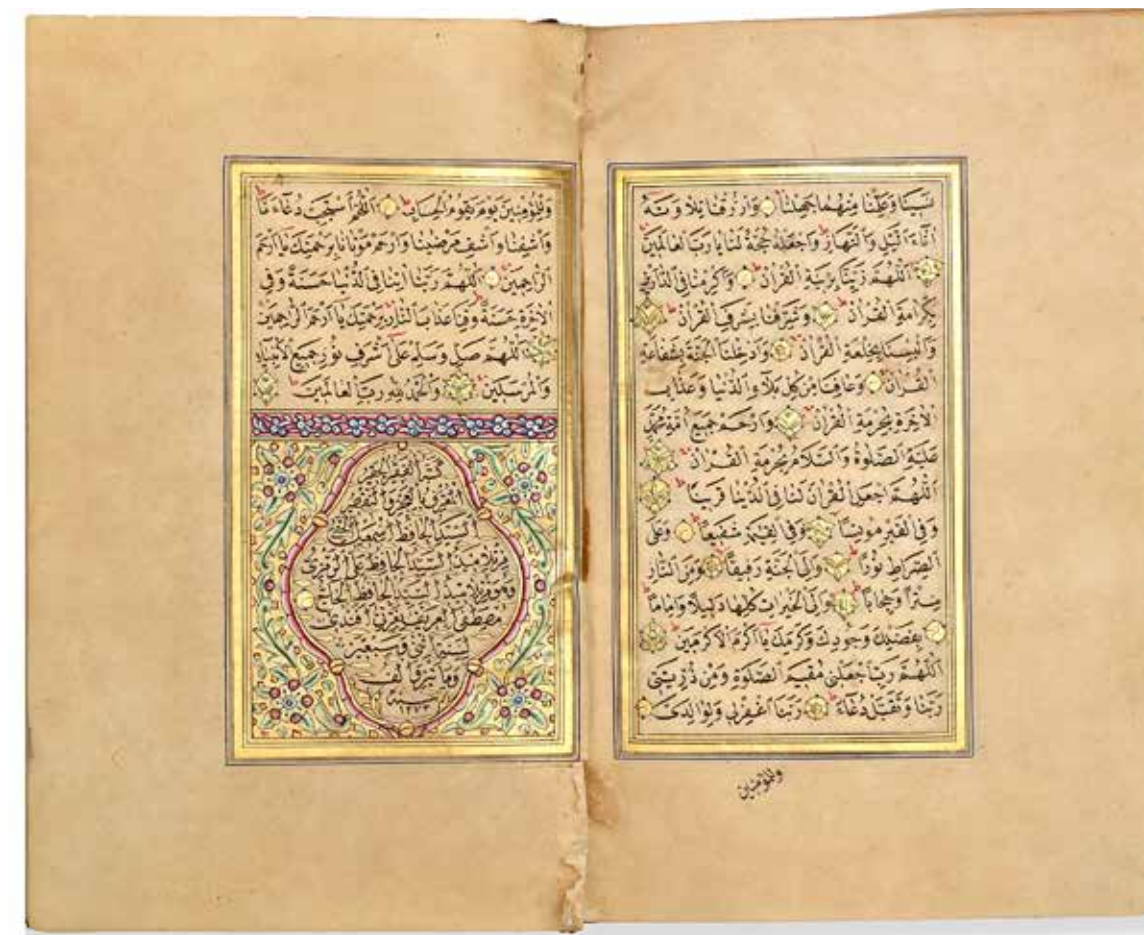 نسينا وعلمنا منهما جهلنا وارزقنا تلاوته
اناء الليل والنهار واجعله حجة لنا يا رب العالمين
اللهم زينا بزينة القرآن واكرمنا في الدارين
بكرامة القرآن وشرفنا بشرف القرآن
والبسنا بخلعة القرآن وادخلنا الجنة بشفاعة
القرآن وعافنا من كل بلاء الدنيا وعذاب
الاخرة بحرمة القرآن وارحم جميع امة محمد
عليه الصلوة والسلام بحرمة القرآن
اللهم اجعل القرآن لنا في الدنيا قرينا
وفي القبر مونسا وفي القيمة شفيعا وعلى
الصراط نورا والى الجنة رفيقا ومن النار
سترا وحجابا والى الخيرات كلها دليلا واماما
بفضلك وجودك وكرمك يا اكرم الاكرمين
اللهم رب اجعلني مقيم الصلوة ومن ذريتي
ربنا وتقبل دعاء ربنا اغفر لي ولوالدي
وللمؤمنين
وللمؤمنين يوم يقوم الحساب اللهم استجب دعاءنا
واشفنا واشف مرضينا وارحم موتانا برحمتك يا ارحم
الراحمين اللهم ربنا اتنا في الدنيا حسنة وفي
الاخرة حسنة وقنا عذاب النار برحمتك يا ارحم الراحمين
اللهم صل وسلم على اشرف نور جميع الانبياء
والمرسلين والحمد لله رب العالمين
كتبه الفقير الحقير
المعترف بالعجز والتقصير
السيد الحافظ اسمعيل
من تلاميذ السيد الحافظ علي
وهو من تلاميذ السيد الحافظ الحاج
مصطفى افندي
لسنة اثنى وسبعين
ومأتين والف